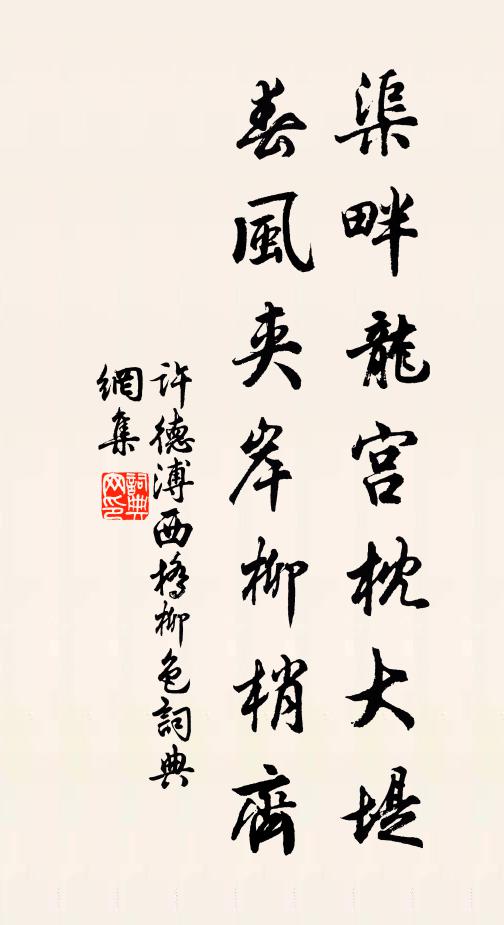 渠畔龍宮枕大堤
春風夾岸柳梢齊
許德溥西橋柳色詞典
網集
詞典
网印